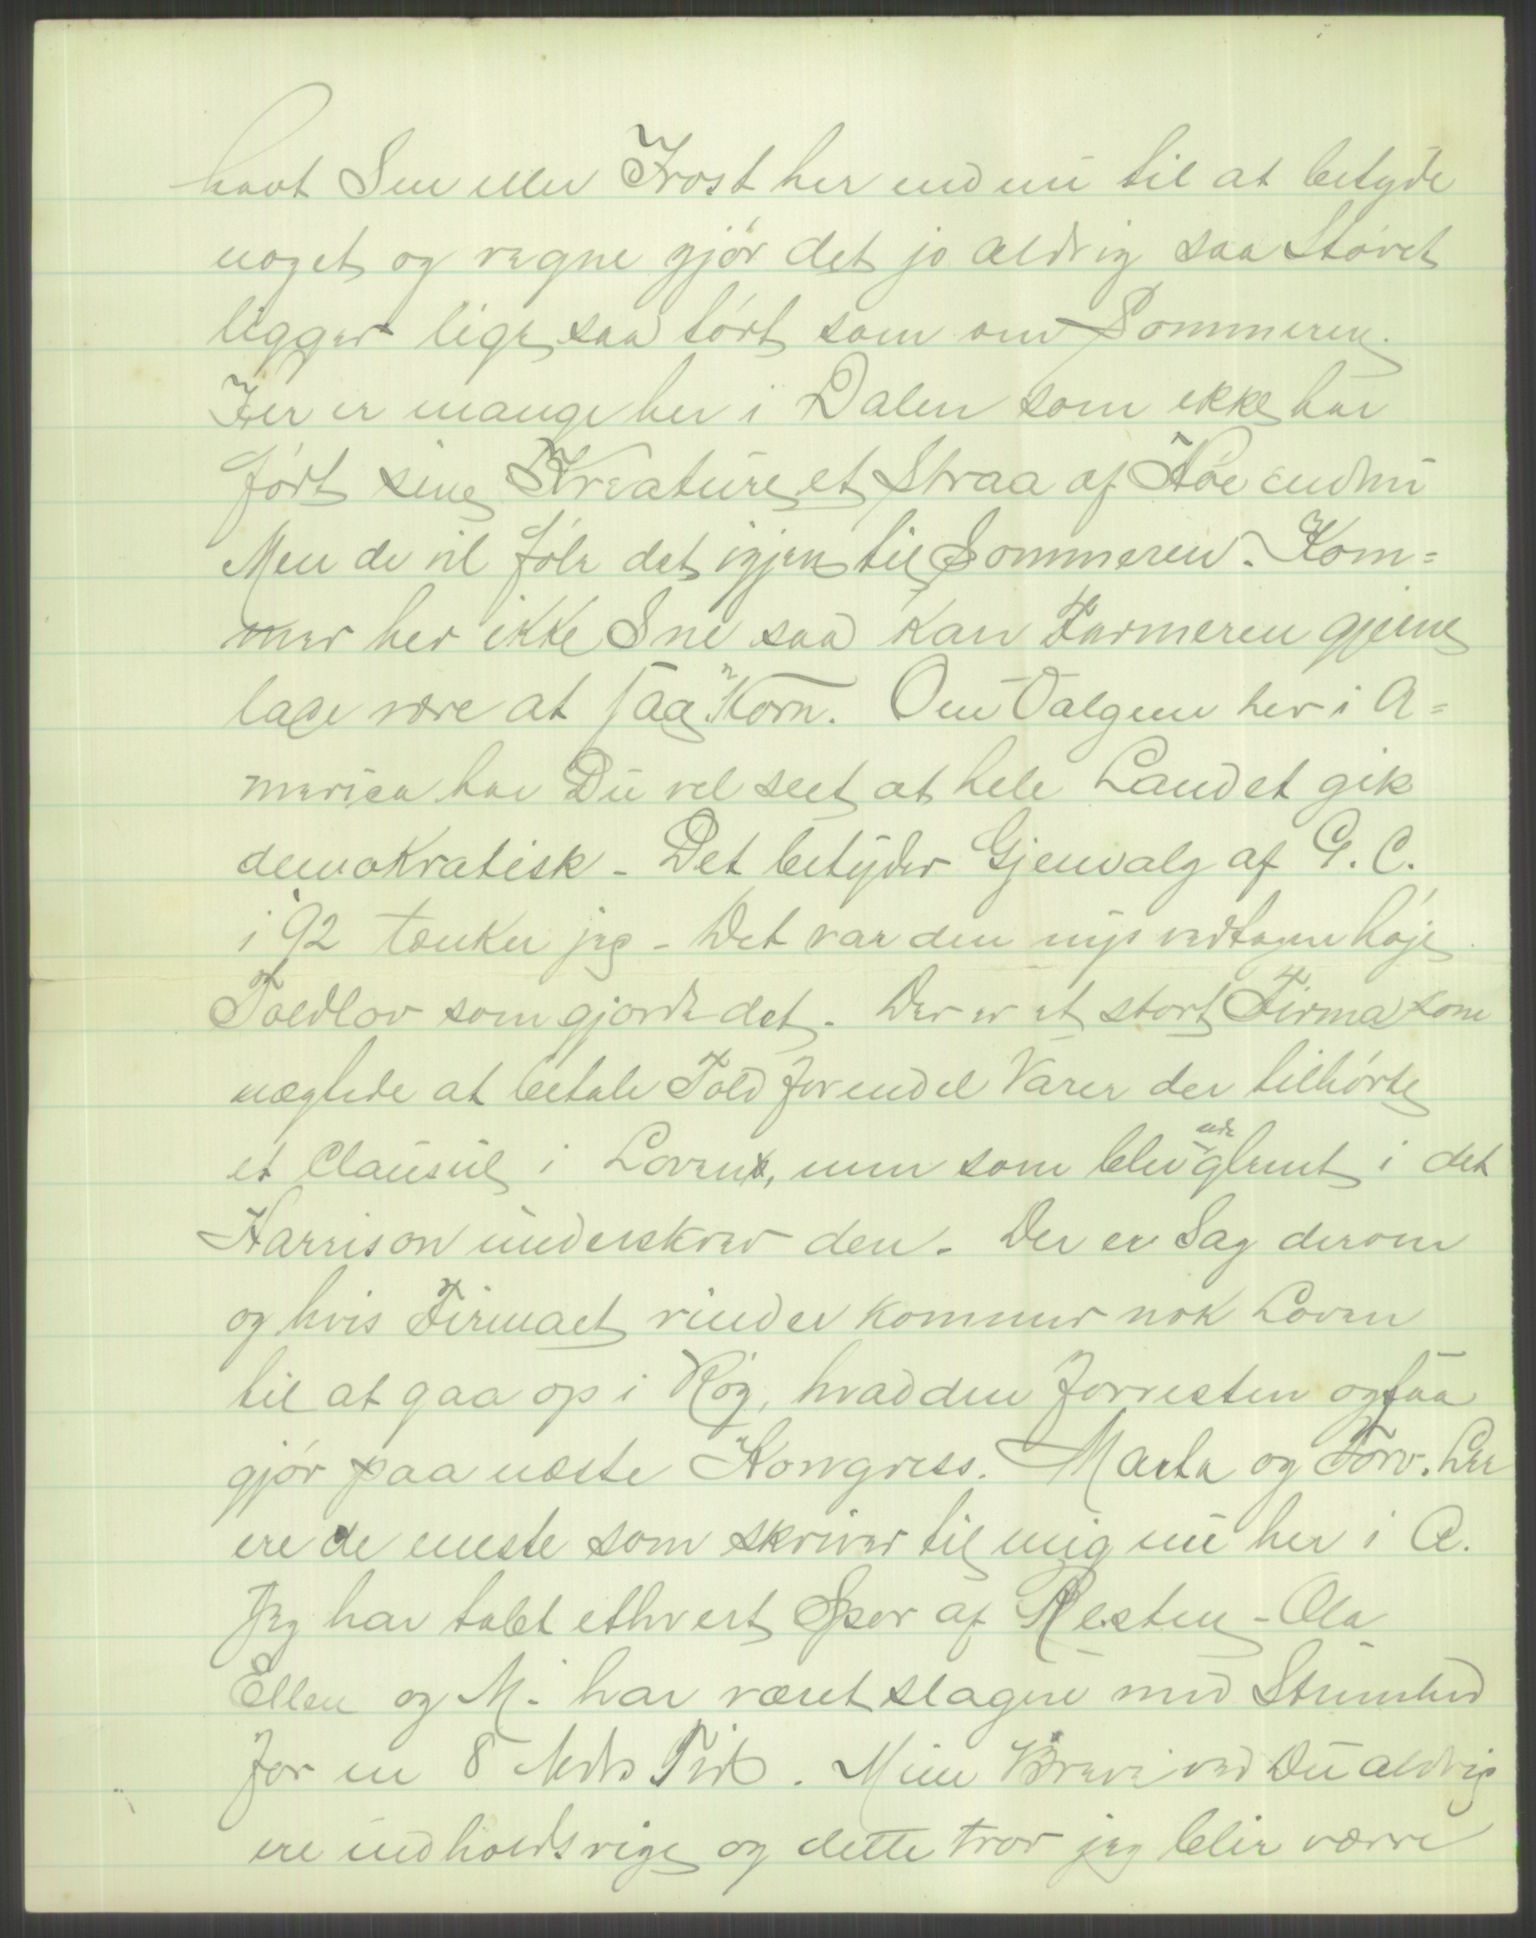 havt Sne eller Frost her endnu til at betyde
noget og regne gjør det jo aldrig saa Støvet
ligger lige saa tørt som om Sommeren.
Her er mange her i Dalen som ikke har
fört sine Kreature et Straa af Høe endnu
Men de vil føle det igjen til Sommeren. Kom=
mer her ikke Sne saa kan Farmeren gjerne
lade være at saa Korn. Om Valgene her i A=
merica har Du vel seet at hele Landet gik
demokratisk - Det betyder Gjenvalg af G. C.
i 92 tænker jeg - Det var den nys vedtagne høje
Toldlov som gjorde det. Der er et stort Firma som
nægtede at betale Told for endel Varer der tilhørte
et Clausul i Loven, men som blev udeglemt i det
Harrison underskrev den. Der er Sag derom
og hvis Firmaet vinder kommer nok Loven
til at gaa op i Røg, hvad den forresten ogsaa
gjør paa næste Kongress. Marta og Torv. Lee
ere de eneste som skriver til mig nu her i A.
Jeg har tabt ethvert Spor af Resten - Ola
Ellen og M. har været slagne med Stumhed
for en 8 Mds Tid. Mine Breve ved Du aldrig
ere indholdsrige og dette tror jeg blir værre